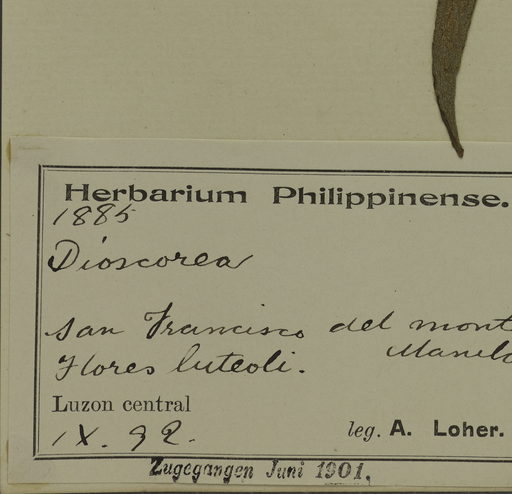 Herbarium Philippinense.
1885
Dioscorea
San Francisco del mont
Manil
Flores luteoli.
Luzon central
IX. 92.
leg. A. Loher.
Zugegangen Juni 1901.